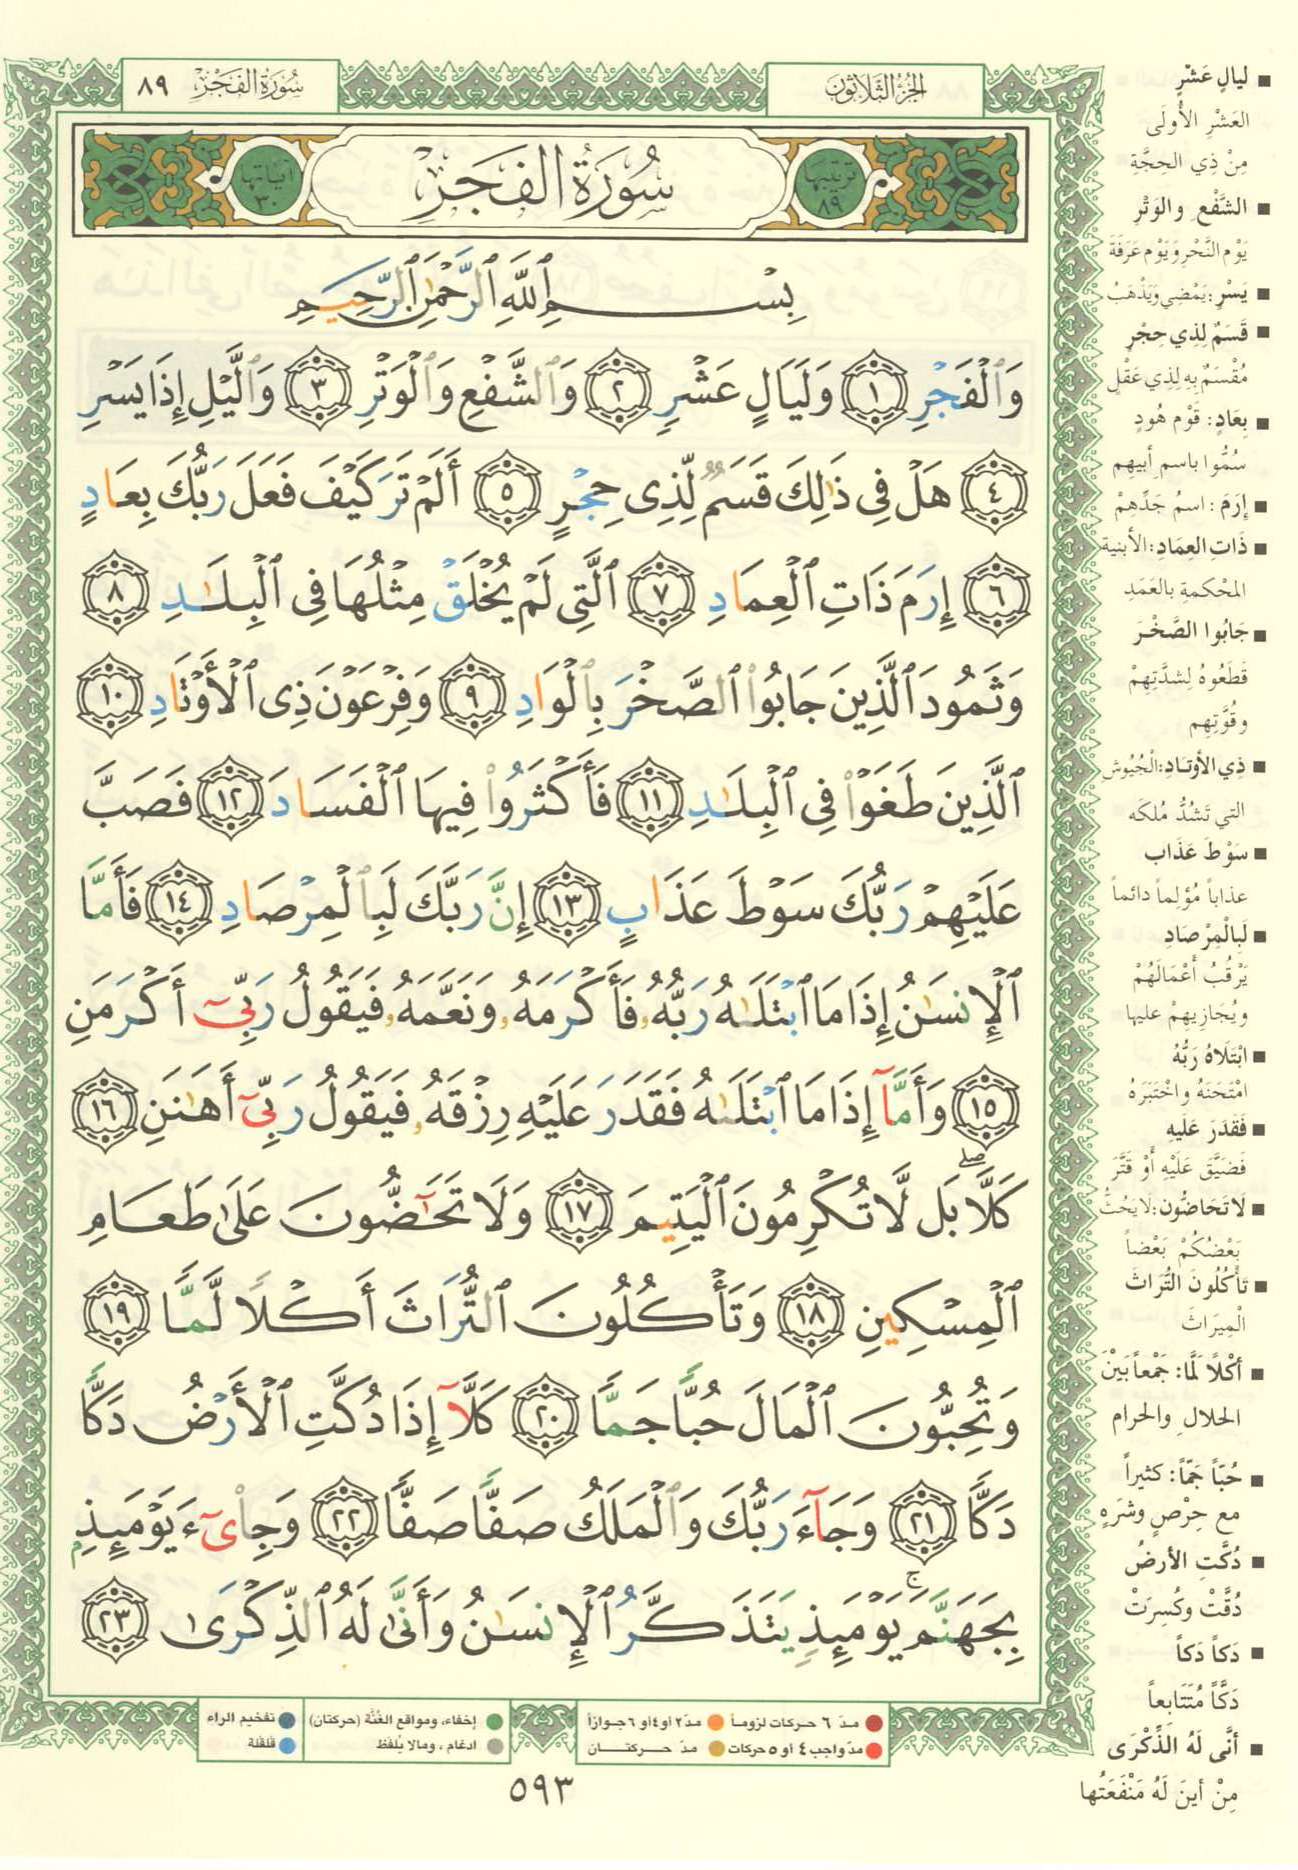 الجزء الثلاثون
سورة الفجر ٨٩
ترتيبها ٨٩
سُورَةُ الفَجْرِ
آياتها ٣٠
بِسْمِ ٱللَّهِ ٱلرَّحْمَٰنِ ٱلرَّحِيمِ
وَٱلْفَجْرِ ١ وَلَيَالٍ عَشْرٍ ٢ وَٱلشَّفْعِ وَٱلْوَتْرِ ٣ وَٱلَّيْلِ إِذَا يَسْرِ
٤ هَلْ فِى ذَٰلِكَ قَسَمٌ لِّذِى حِجْرٍ ٥ أَلَمْ تَرَ كَيْفَ فَعَلَ رَبُّكَ بِعَادٍ
٦ إِرَمَ ذَاتِ ٱلْعِمَادِ ٧ ٱلَّتِى لَمْ يُخْلَقْ مِثْلُهَا فِى ٱلْبِلَٰدِ ٨
وَثَمُودَ ٱلَّذِينَ جَابُوا۟ ٱلصَّخْرَ بِٱلْوَادِ ٩ وَفِرْعَوْنَ ذِى ٱلْأَوْتَادِ ١٠
ٱلَّذِينَ طَغَوْا۟ فِى ٱلْبِلَٰدِ ١١ فَأَكْثَرُوا۟ فِيهَا ٱلْفَسَادَ ١٢ فَصَبَّ
عَلَيْهِمْ رَبُّكَ سَوْطَ عَذَابٍ ١٣ إِنَّ رَبَّكَ لَبِٱلْمِرْصَادِ ١٤ فَأَمَّا
ٱلْإِنسَٰنُ إِذَا مَا ٱبْتَلَىٰهُ رَبُّهُۥ فَأَكْرَمَهُۥ وَنَعَّمَهُۥ فَيَقُولُ رَبِّىٓ أَكْرَمَنِ
١٥ وَأَمَّآ إِذَا مَا ٱبْتَلَىٰهُ فَقَدَرَ عَلَيْهِ رِزْقَهُۥ فَيَقُولُ رَبِّىٓ أَهَٰنَنِ ١٦
كَلَّا ۖ بَل لَّا تُكْرِمُونَ ٱلْيَتِيمَ ١٧ وَلَا تَحَٰٓضُّونَ عَلَىٰ طَعَامِ
ٱلْمِسْكِينِ ١٨ وَتَأْكُلُونَ ٱلتُّرَاثَ أَكْلًا لَّمًّا ١٩
وَتُحِبُّونَ ٱلْمَالَ حُبًّا جَمًّا ٢٠ كَلَّآ إِذَا دُكَّتِ ٱلْأَرْضُ دَكًّا
دَكًّا ٢١ وَجَآءَ رَبُّكَ وَٱلْمَلَكُ صَفًّا صَفًّا ٢٢ وَجِا۟ىٓءَ يَوْمَئِذٍۭ
بِجَهَنَّمَ ۚ يَوْمَئِذٍ يَتَذَكَّرُ ٱلْإِنسَٰنُ وَأَنَّىٰ لَهُ ٱلذِّكْرَىٰ ٢٣
■ لَيالٍ عَشْرٍ
العَشْرِ الأُولَى
مِنْ ذِي الحِجَّةِ
■ الشَّفْعِ والوَتْرِ
يَوْمِ النَّحْرِ وَيَوْمِ عَرَفَةَ
■ يَسْرِ: يَمْضِي وَيَذْهَبُ
■ قَسَمٌ لِذِي حِجْرٍ
مُقْسَمٌ بِهِ لِذِي عَقْلٍ
■ بِعَادٍ: قَوْمِ هُودٍ
سُمُّوا باسمِ أَبِيهِم
■ إِرَمَ: اسمُ جَدِّهِمْ
■ ذَاتِ العِمَادِ: الأبنية
المُحْكمةِ بالعَمَدِ
■ جَابُوا الصَّخْرَ
قَطَعُوهُ لِشدَّتِهِمْ
وقُوَّتِهِم
■ ذِي الأوتادِ: الْجُيُوشِ
التي تَشُدُّ مُلكَه
■ سَوْطَ عَذَاب
عذاباً مُؤلِماً دائماً
■ لَبِالْمِرْصَادِ
يَرْقُبُ أَعْمَالَهُمْ
ويُجَازِيهِمْ عليها
■ ابْتَلَاهُ رَبُّهُ
امْتَحَنَهُ واخْتَبَرَهُ
■ فَقَدَرَ عَلَيهِ
فَضَيَّقَ عَلَيْهِ أَوْ قَتَّرَ
■ لَا تَحَاضُّون: لا يَحُثُّ
بَعْضُكُمْ بَعْضاً
■ تَأْكُلُونَ التُّرَاثَ
الْمِيرَاثَ
■ أَكْلًا لَمًّا: جَمْعاً بَيْنَ
الحَلالِ والحرام
■ حُبّاً جَمّاً: كثيراً
مع حِرْصٍ وشَرَهٍ
■ دُكَّتِ الأرضُ
دُقَّتْ وكُسِرَتْ
■ دَكاً دَكاً
دَكّاً مُتَتَابعاً
■ أنَّى لَهُ الذِّكْرَى
مِنْ أينَ لَهُ مَنْفَعَتُها
مدّ ٦ حركات لزوماً ● مدّ ٢ أو ٤ أو ٦ جوازاً
مدّ واجب ٤ أو ٥ حركات ● مدّ حركتان
إخفاء، ومواقع الغُنَّة (حركتان) ● تفخيم الراء
ادغام، ومالا يُلفظ ● قلقلة
٥٩٣